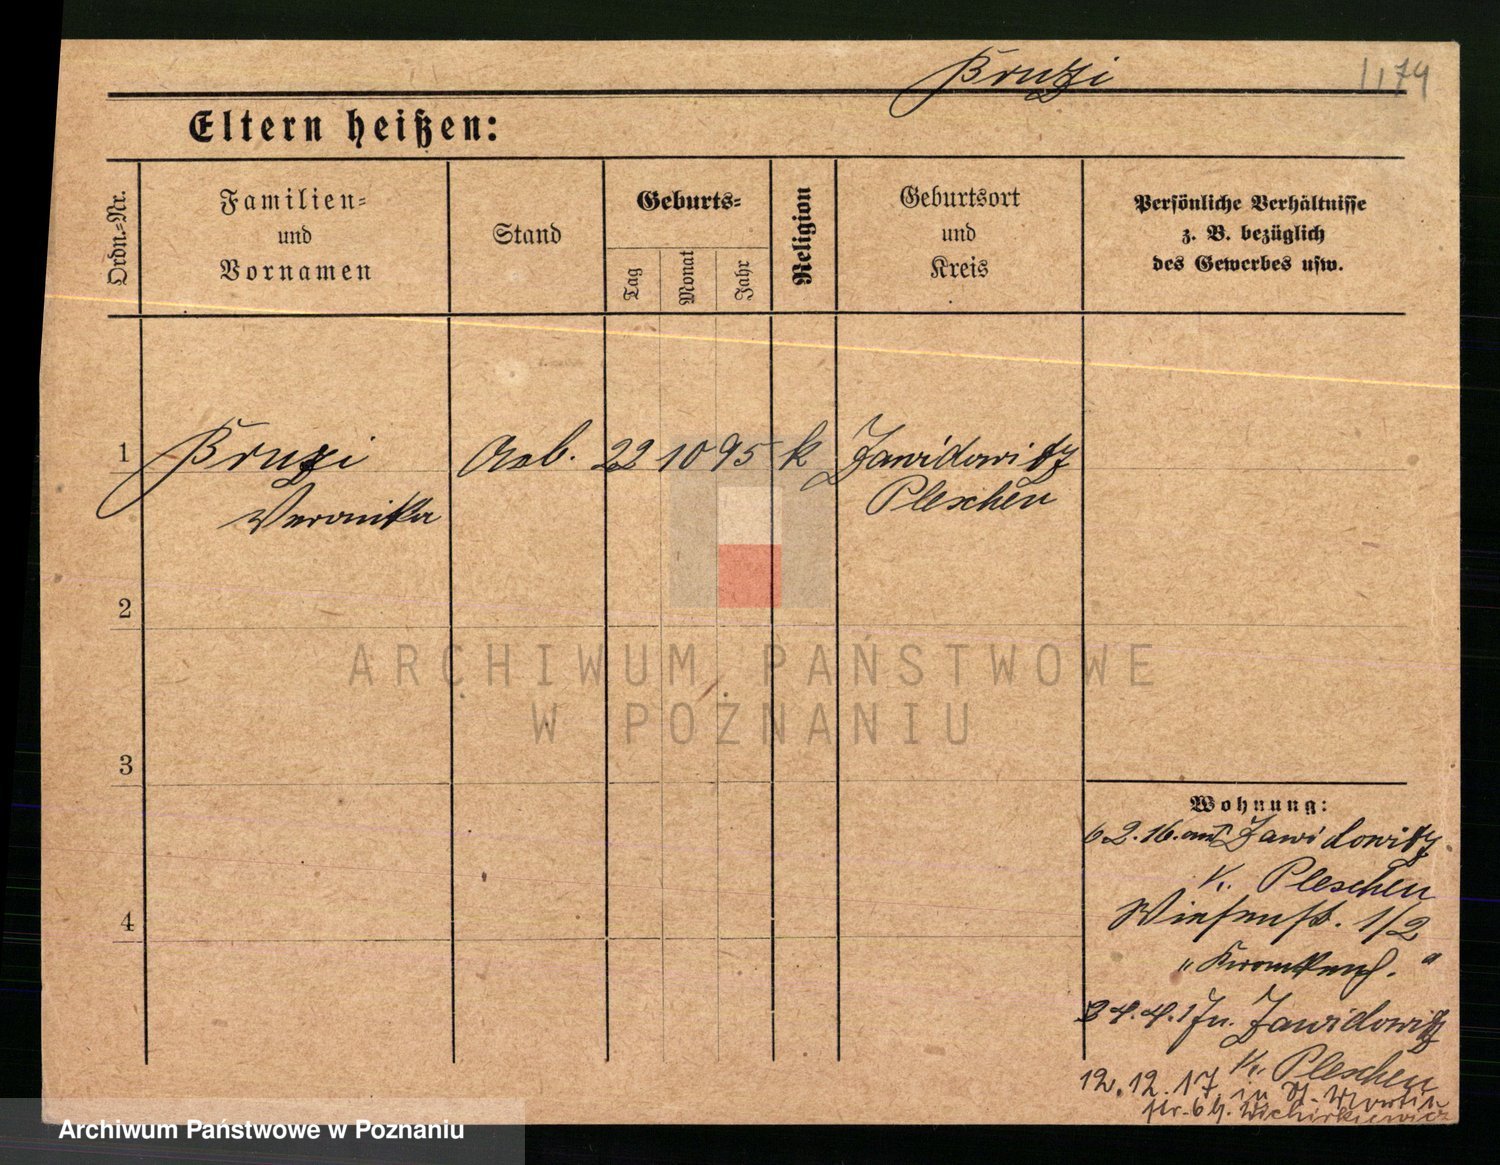 Bruzi 1174
Eltern heißen:
Ordn.-Nr.
Familien- und Vornamen
Stand
Geburts-
Tag
Monat
Jahr
Religion
Geburtsort und Kreis
Persönliche Verhältnisse
z. B. bezüglich
des Gewerbes usw.
1 Bruzi Arb. 22 10 95 k Zawidowitz
Veronika Pleschen
2
3
4
Wohnung:
6.2.16. aus Zawidowitz
K. Pleschen
Wiesenstr. 1/2
"Krankenh."
24.4.17 n. Zawidowitz
K. Pleschen
12.12.17 in St. Martin
str. 6 b. Wicherkiewicz
ARCHIWUM PAŃSTWOWE
W POZNANIU
Archiwum Państwowe w Poznaniu